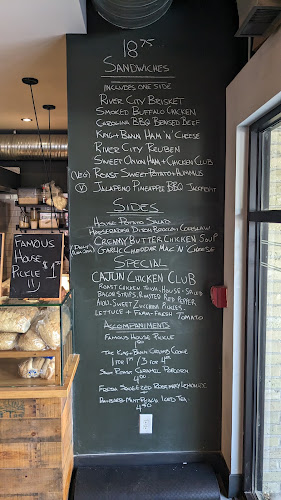 18.75
SANDWICHES
INCLUDES ONE SIDE
RIVER CITY BRISKET
SMOKED BUFFALO CHICKEN
CAROLINA BBQ BRAISED BEEF
KING + BANN HAM 'N' CHEESE
RIVER CITY REUBEN
SWEET ONION HAM + CHICKEN CLUB
ROAST SWEET POTATO + HUMMUS
(V) JALAPENO PINEAPPLE BBQ JACKFRUIT
SIDES
HOUSE POTATO SALAD
HORSERADISH DIJON BROCCOLI COLESLAW
CREAMY BUTTER CHICKEN SOUP
GARLIC CHEDDAR MAC 'N' CHEESE
SPECIAL
CAJUN CHICKEN CLUB
ROAST CHICKEN THIGH, HOUSE-SMOKED
BACON STRIPS, ROASTED RED PEPPER
AIOLI, SWEET ZUCCHINI PICKLES,
LETTUCE + FARM-FRESH TOMATO
ACCOMPANIMENTS
FAMOUS HOUSE PICKLE
THE KING + BANN GRUMB COOKIE
1 FOR 1.75 / 3 FOR 4.75
SLOW ROAST CARAMEL POPCORN
4.00
FRESH SQUEEZED ROSEMARY LEMONADE
MINT PEACH ICED TEA
4.50
FAMOUS
HOUSE
PICKLE
!!!